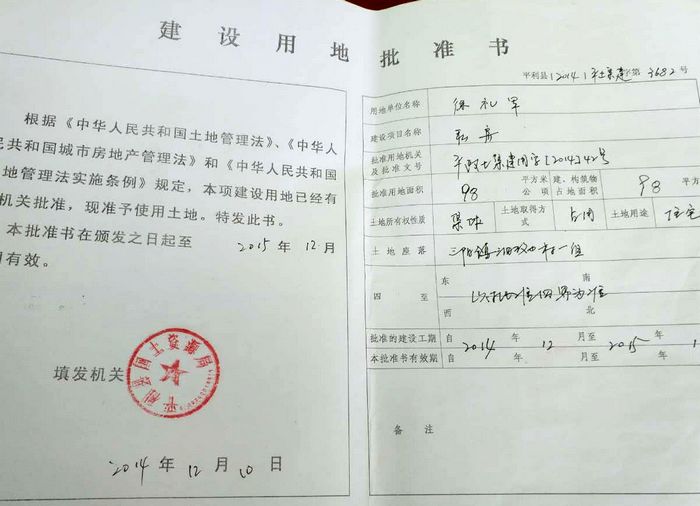 建设用地批准书
根据《中华人民共和国土地管理法》、《中华人
民共和国城市房地产管理法》和《中华人民共和国
地管理法实施条例》规定，本项建设用地已经有
机关批准，现准予使用土地。特发此书。
本批准书在颁发之日起至 2015 年 12 月
有效。
平利县国土资源局
填发机关
2014 年 12 月 10 日
平利县［2014］平土集建字第 3682 号
用地单位名称 徐礼军
建设项目名称 私房
批准用地机关及批准文号 平政土集建用字[2014]42号
批准用地面积 98 平方米 公顷 建、构筑物占地面积 98 平方
土地所有权性质 集体 土地取得方式 占用 土地用途 住宅
土地座落 三阳镇 村一组
四至 东 南 西 北 以批准四界为准
批准的建设工期 自 年 月至 年
本批准书有效期 自 2014 年 12 月至 2015 年 1
备注